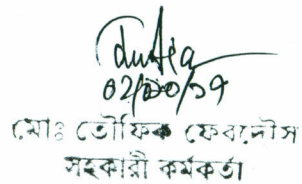 ০২/১০/১৭
মোঃ তৌফিক ফেরদৌস
সহকারী কর্মকর্তা